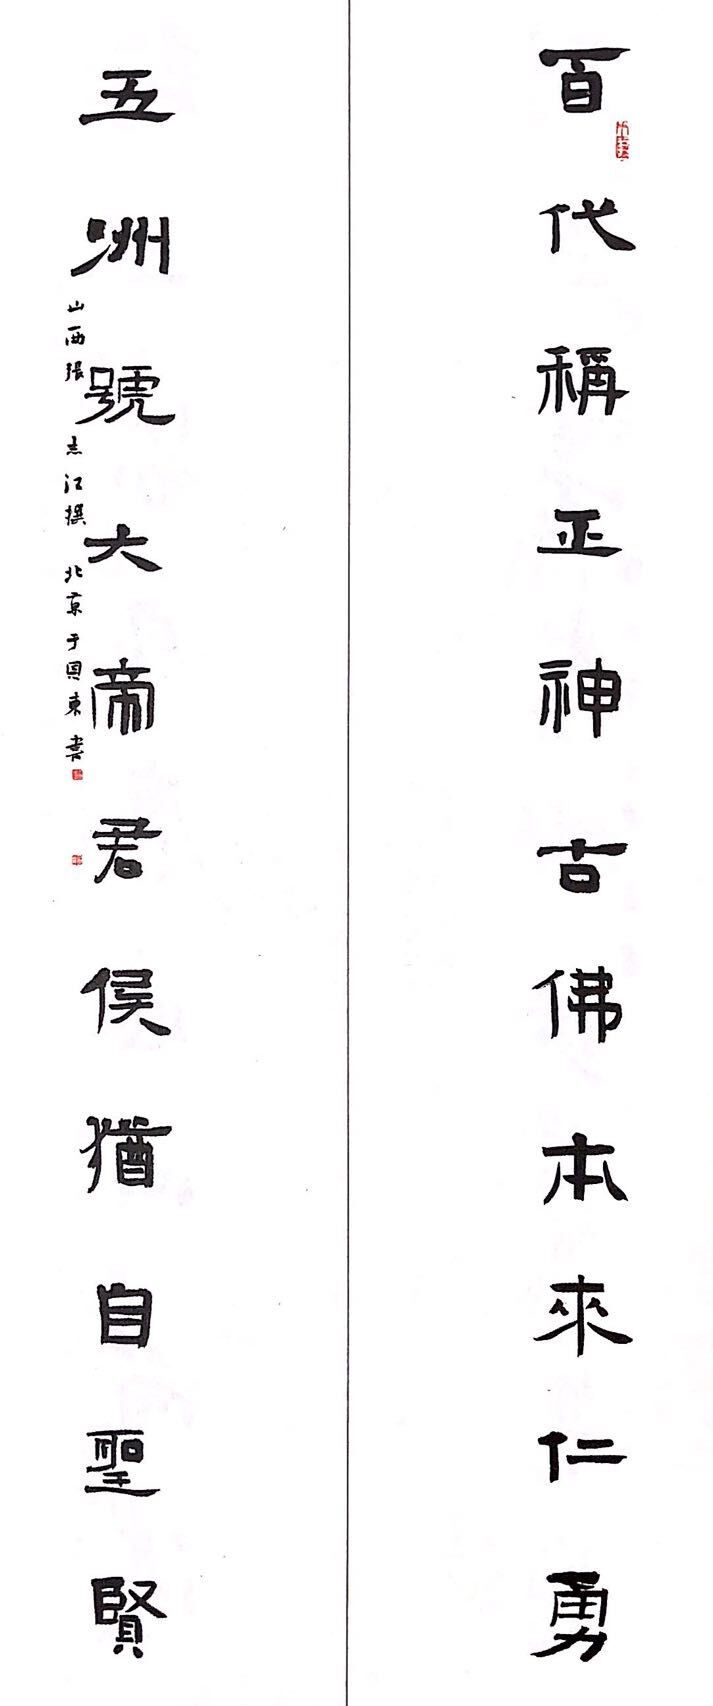 百代稱正神古佛本來仁勇
五洲號大帝君侯猶自聖賢
山西張志江撰 北京于國東書